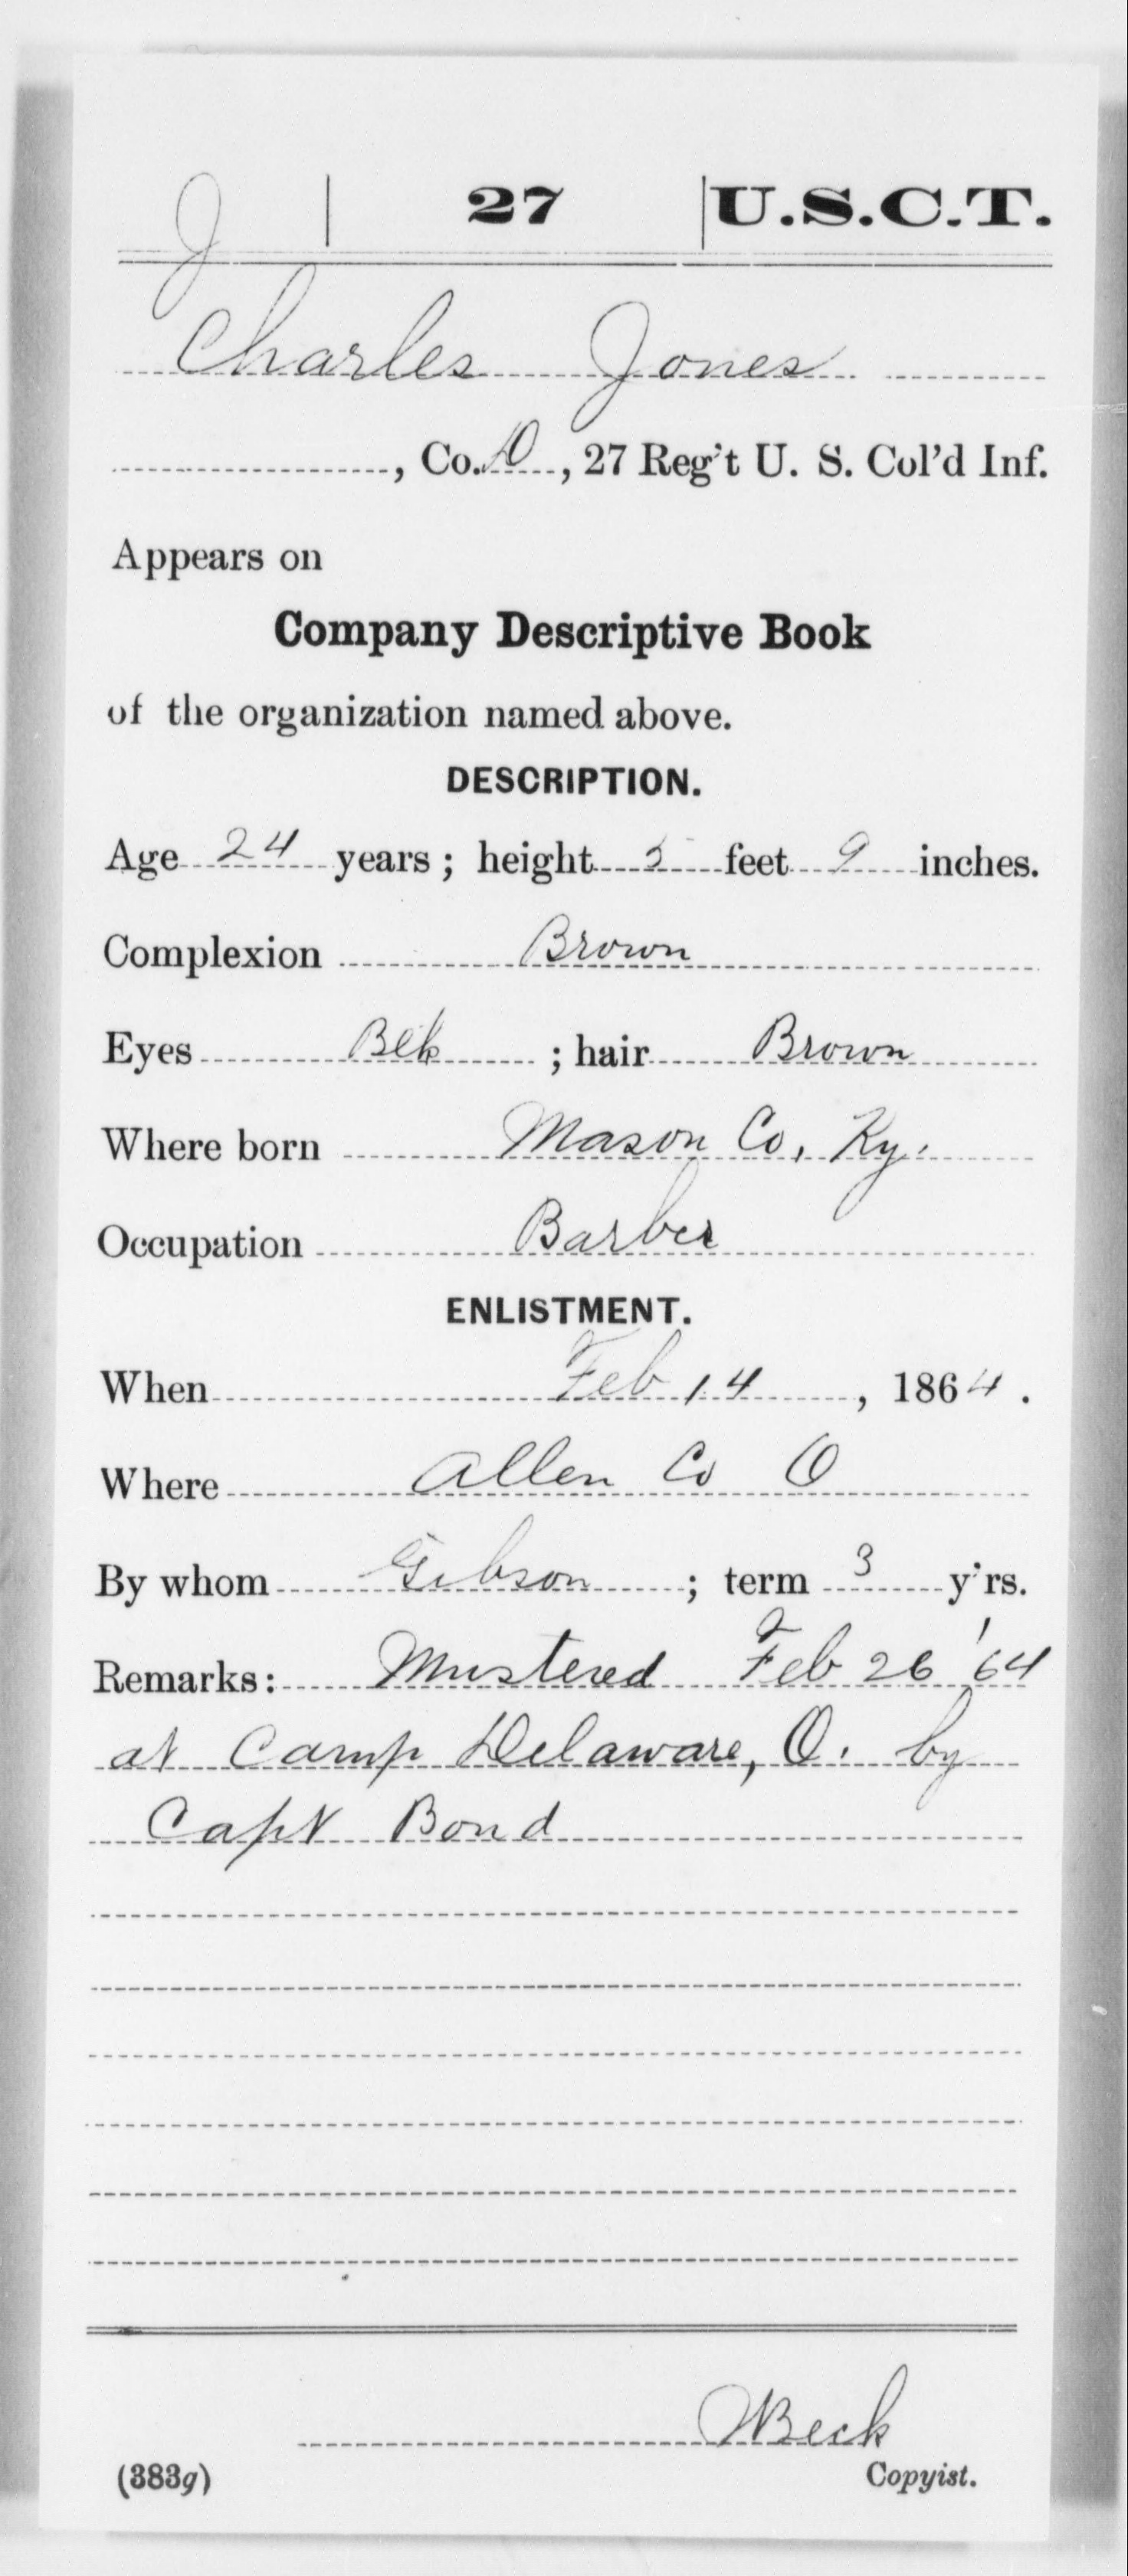 J | 27 | U.S.C.T.
Charles Jones
, Co. D, 27 Reg't U. S. Col'd Inf.
Appears on
Company Descriptive Book
of the organization named above.
DESCRIPTION.
Age 24 years; height 5 feet 9 inches.
Complexion Brown
Eyes Blk; hair Brown
Where born Mason Co, Ky.
Occupation Barber
ENLISTMENT.
When Feb 14, 1864.
Where Allen Co O
By whom Gibson; term 3 y'rs.
Remarks: Mustered Feb 26 '64
at Camp Delaware, O. by
Capt Bond
Beck
(383g) Copyist.